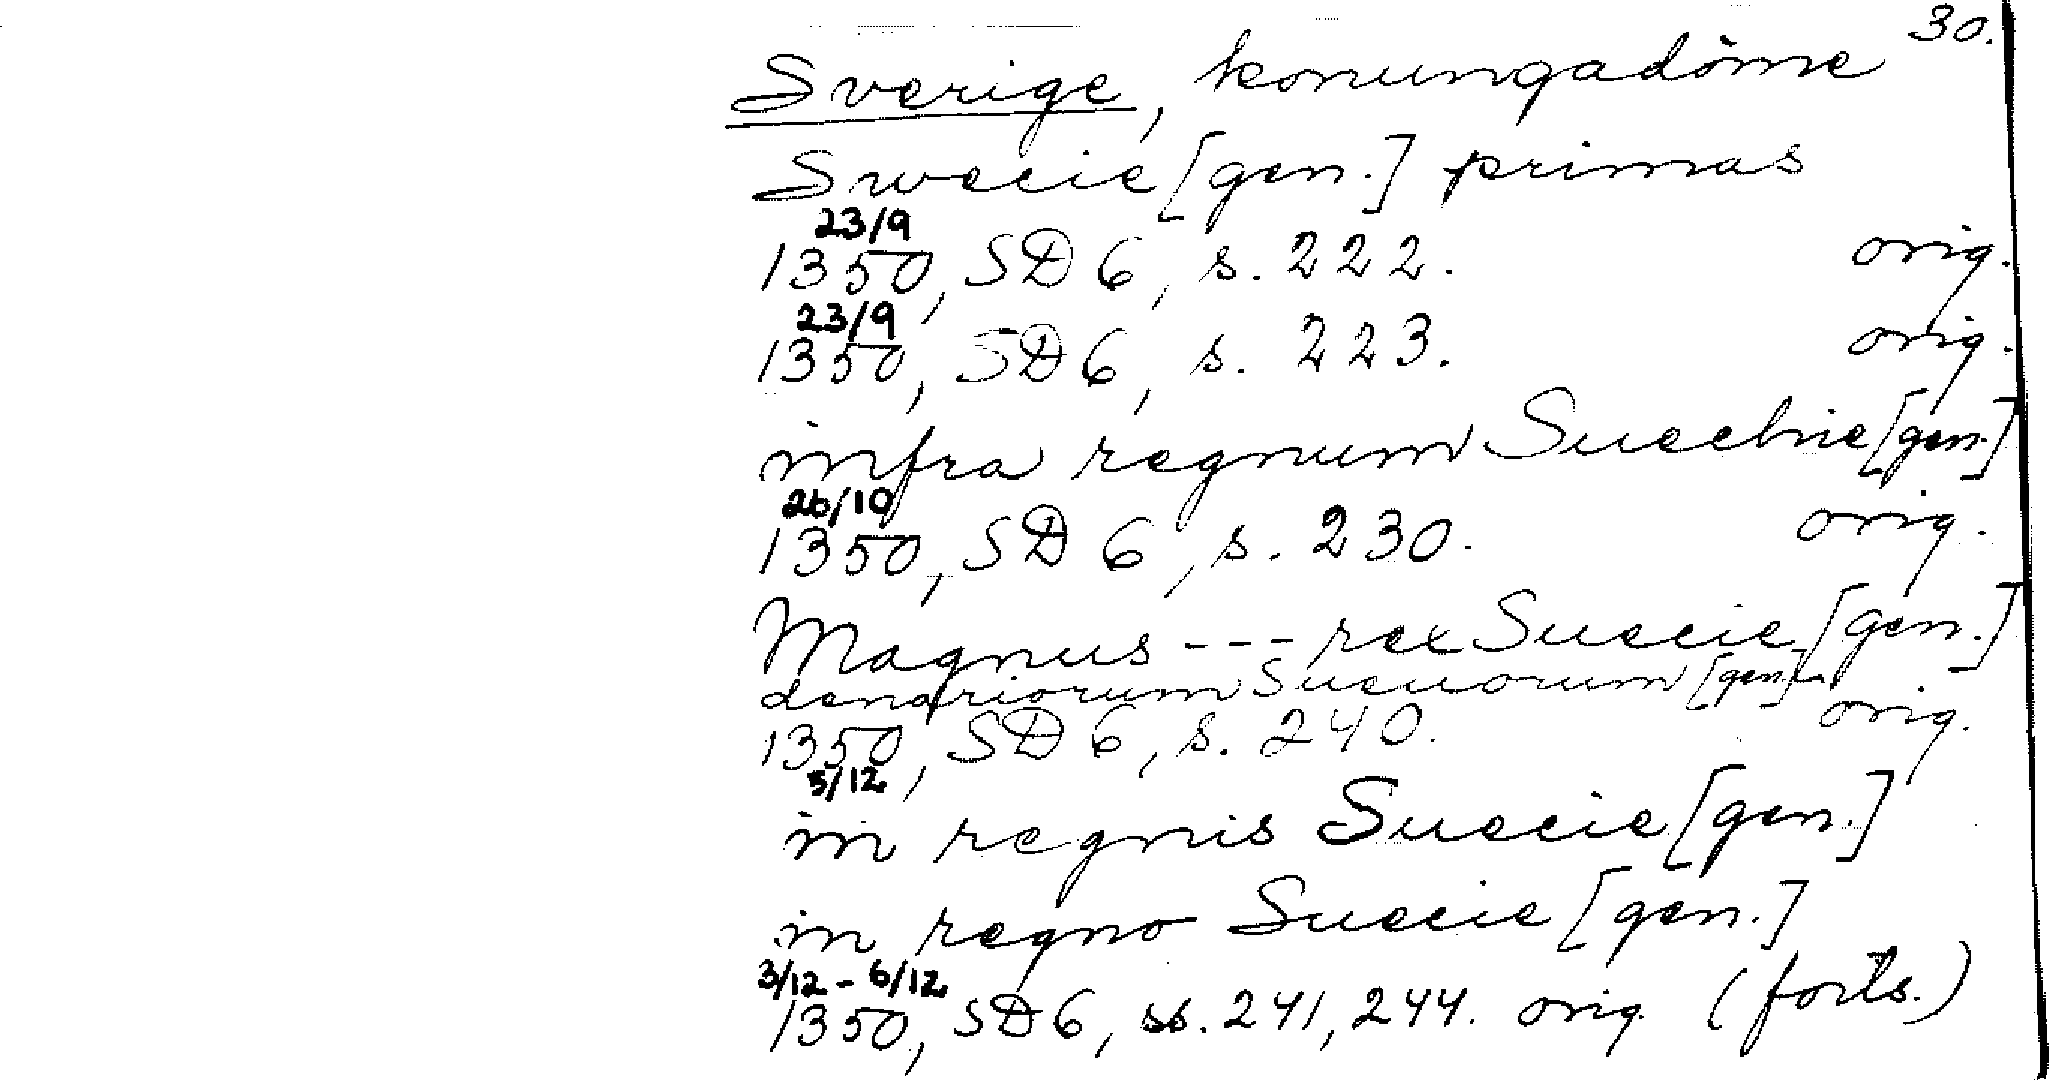 30.
Sverige, konungadöme
Swecie [gen.] primas
23/9
1350, SD 6, s. 222. orig.
23/9
1350, SD 6, s. 223. orig.
infra regnum Suechie [gen.]
26/10
1350, SD 6, s. 230. orig.
Magnus --- rex Suecie [gen.]
denariorum Sueuorum [gen.]
1350, SD 6, s. 240. orig.
5/12
in regnis Suecie [gen.]
in regno Suecie [gen.]
3/12 - 6/12
1350, SD 6, ss. 241, 244. orig (forts.)